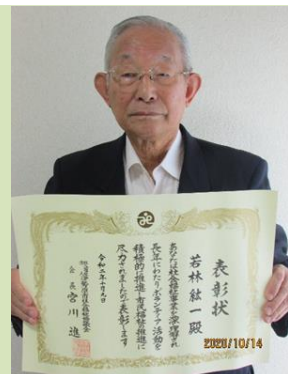 表彰状
若林紘一殿
あなたは社会福祉事業を深く理解され
長年にわたりボランティア活動を
積極的に推進し市民福祉推進に
尽力されましたので表彰します
令和二年十月九日
会長 宮川 進
2020/10/14